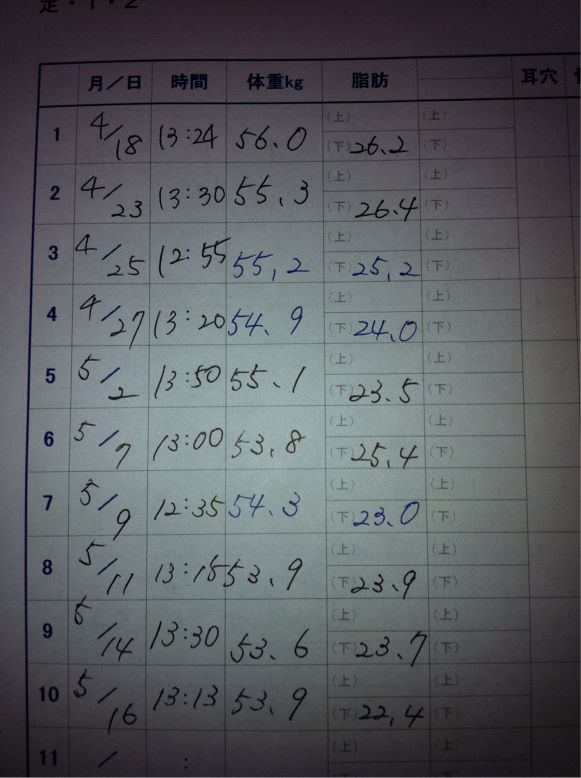 定・1・2
月／日 時間 体重kg 脂肪 耳穴
1 4/18 13:24 56.0 (上) (下)26.2 (上) (下)
2 4/23 13:30 55.3 (上) (下)26.4 (上) (下)
3 4/25 12:55 55,2 (上) (下)25,2 (上) (下)
4 4/27 13:20 54.9 (上) (下)24.0 (上) (下)
5 5/2 13:50 55.1 (上) (下)23.5 (上) (下)
6 5/7 13:00 53.8 (上) (下)25,4 (上) (下)
7 5/9 12:35 54.3 (上) (下)23.0 (上) (下)
8 5/11 13:15 53.9 (上) (下)23.9 (上) (下)
9 5/14 13:30 53.6 (上) (下)23.7 (上) (下)
10 5/16 13:13 53.9 (上) (下)22,4 (上) (下)
11 / : (上) (上)